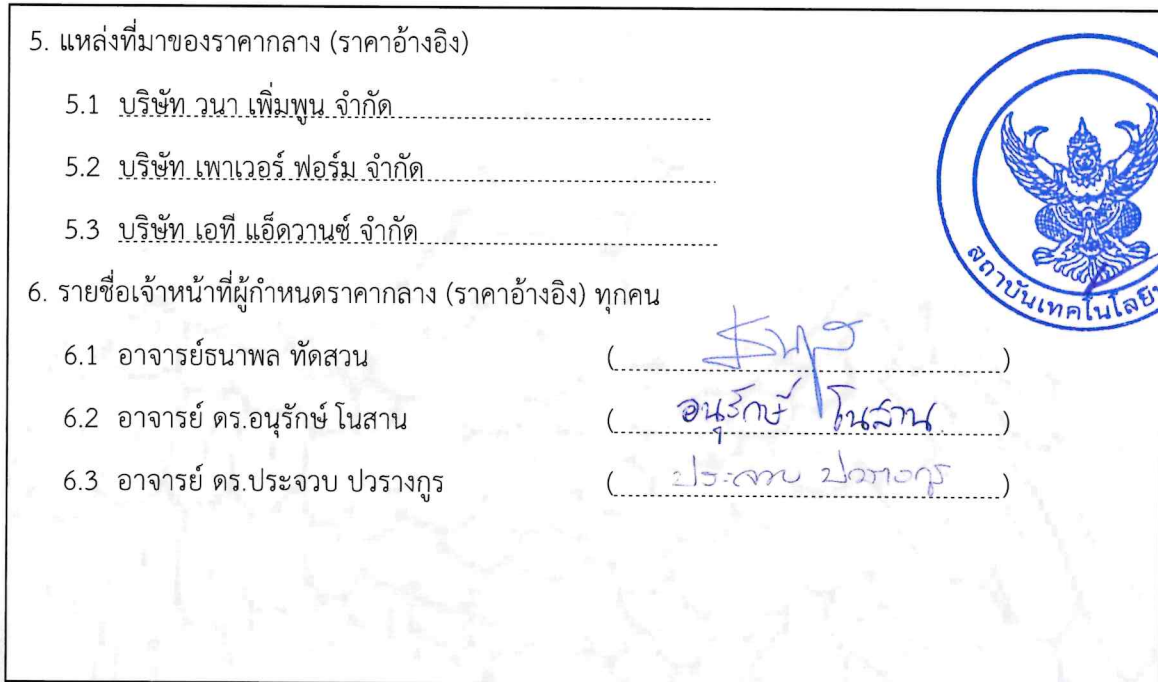 5. แหล่งที่มาของราคากลาง (ราคาอ้างอิง)
5.1 บริษัท วนา เพิ่มพูน จำกัด
5.2 บริษัท เพาเวอร์ ฟอร์ม จำกัด
5.3 บริษัท เอที แอ็ดวานซ์ จำกัด
สถาบันเทคโนโลยี
6. รายชื่อเจ้าหน้าที่ผู้กำหนดราคากลาง (ราคาอ้างอิง) ทุกคน
6.1 อาจารย์ธนาพล ทัดสวน ( )
6.2 อาจารย์ ดร.อนุรักษ์ โนสาน (อนุรักษ์ โนสาน)
6.3 อาจารย์ ดร.ประจวบ ปวรางกูร (ประจวบ ปวรางกูร)